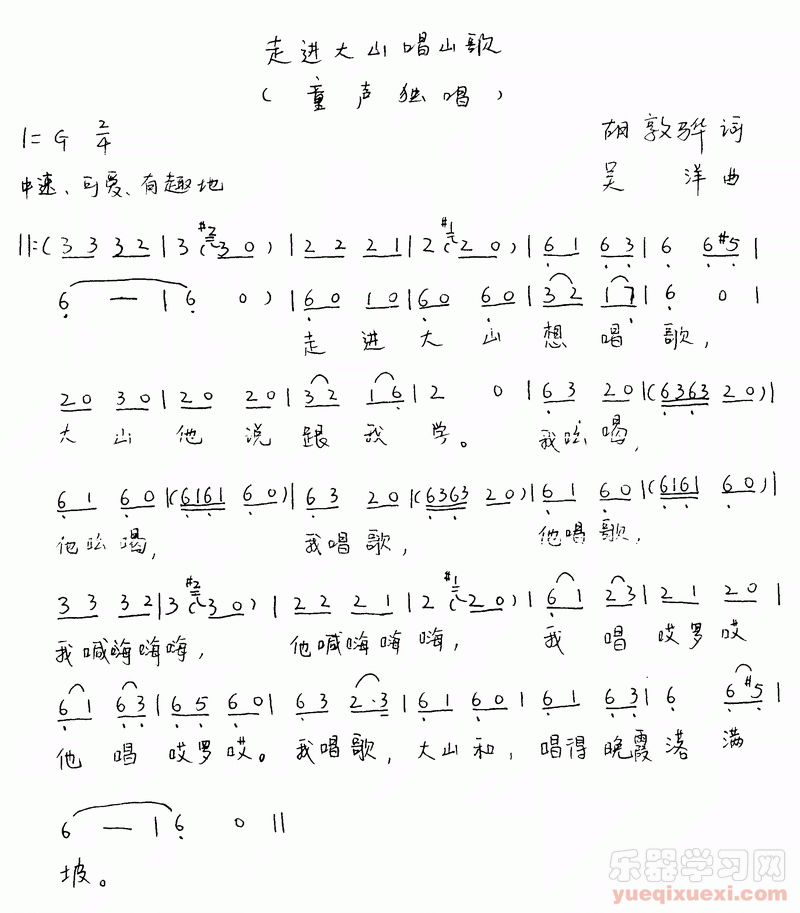 走进大山唱山歌
(童声独唱)
1=G 2/4
胡敦骅词
中速、可爱、有趣地
吴洋曲
||:(3 3 3 2 | 3 (#2 3 0) | 2 2 2 1 | 2 (#1 2 0) | 6 1 6 3 | 6 6 #5 |
6 — | 6 0) | 6 0 1 0 | 6 0 6 0 | 3 2 1 7 | 6 0 |
走进大山想唱歌,
2 0 3 0 | 2 0 2 0 | 3 2 1 6 | 2 0 | 6 3 2 0 | (6363 2 0) |
大山他说跟我学。我吆喝,
6 1 6 0 | (6161 6 0) | 6 3 2 0 | (6363 2 0) | 6 1 6 0 | (6161 6 0) |
他吆喝,我唱歌,他唱歌,
3 3 3 2 | 3 (#2 3 0) | 2 2 2 1 | 2 (#1 2 0) | 6 1 2 3 | 2 1 2 0 |
我喊嗨嗨嗨,他喊嗨嗨嗨,我唱哎罗哎
6 1 6 3 | 6 5 6 0 | 6 3 2·3 | 6 1 6 0 | 6 1 6 3 | 6 6 #5 |
他唱哎罗哎。我唱歌,大山和,唱得晚霞落满
6 — | 6 0 ||
坡。
乐器学习网
yueqixuexi.com